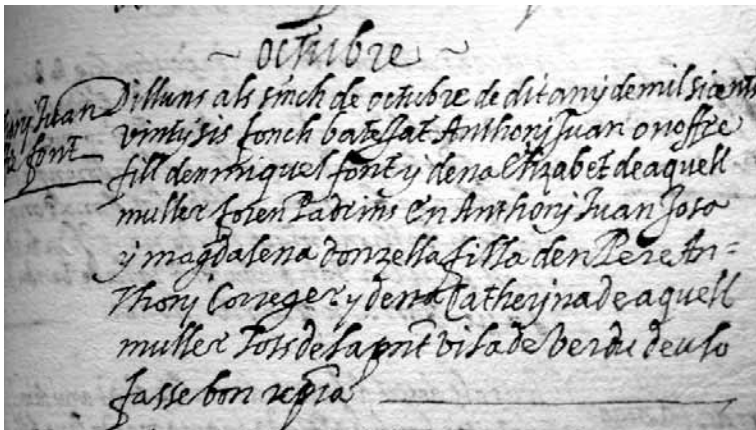 ~ octubre ~
Juan
font
Dilluns als sinch de octubre de dit any de mil sicents
vintysis fonch batejat Anthony Juan onoffre
fill den miquel font y dena Elizabet de aquell
muller foren Padrins En Anthony Juan Joro
y magdalena donzella filla den Pere An=
thony Correger y dena Catheryna de aquell
muller tots de la pnt vila de Verdu deu lo
fasse bon xpia